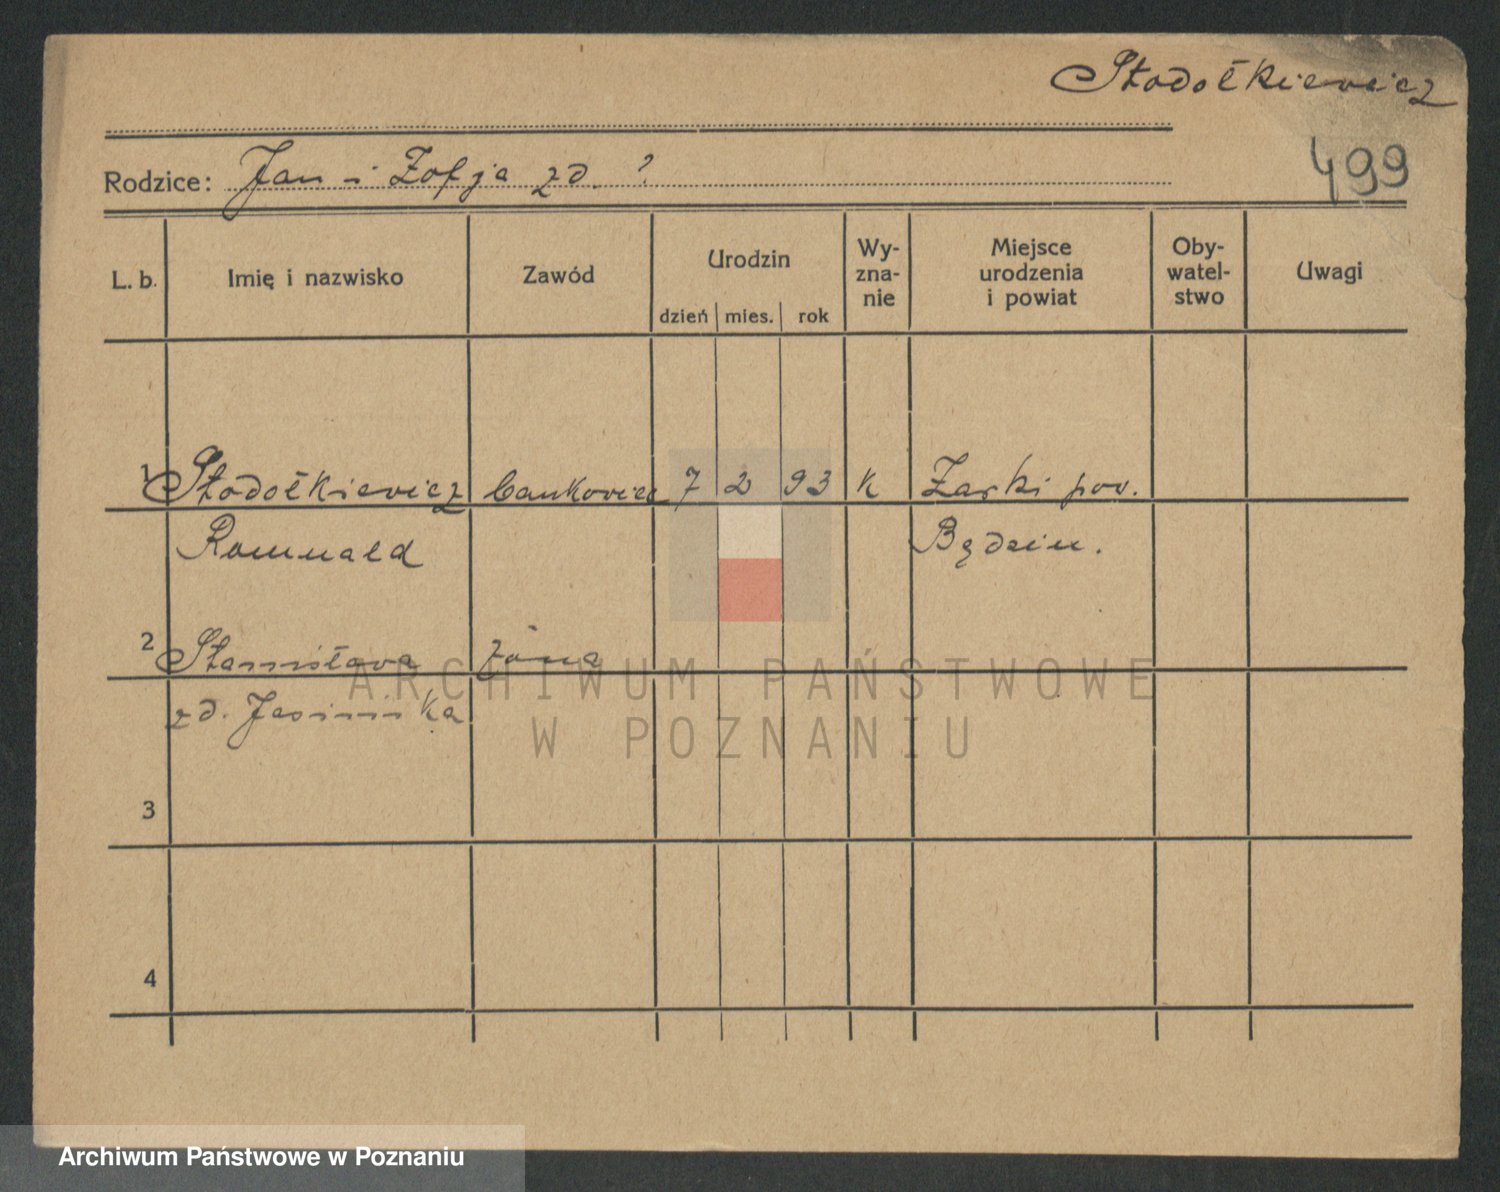 Stodołkiewicz
499
Rodzice: Jan i Zofja zd. ?
L. b. Imię i nazwisko Zawód Urodzin dzień mies. rok Wy-zna-nie Miejsce urodzenia i powiat Oby-watel-stwo Uwagi
1 Stodołkiewicz bankowiec 7 2 93 k Zarki pow.
Romuald Będzin.
2 Stanisława żona
zd. Jasińska
3
4
ARCHIWUM PAŃSTWOWE
W POZNANIU
Archiwum Państwowe w Poznaniu